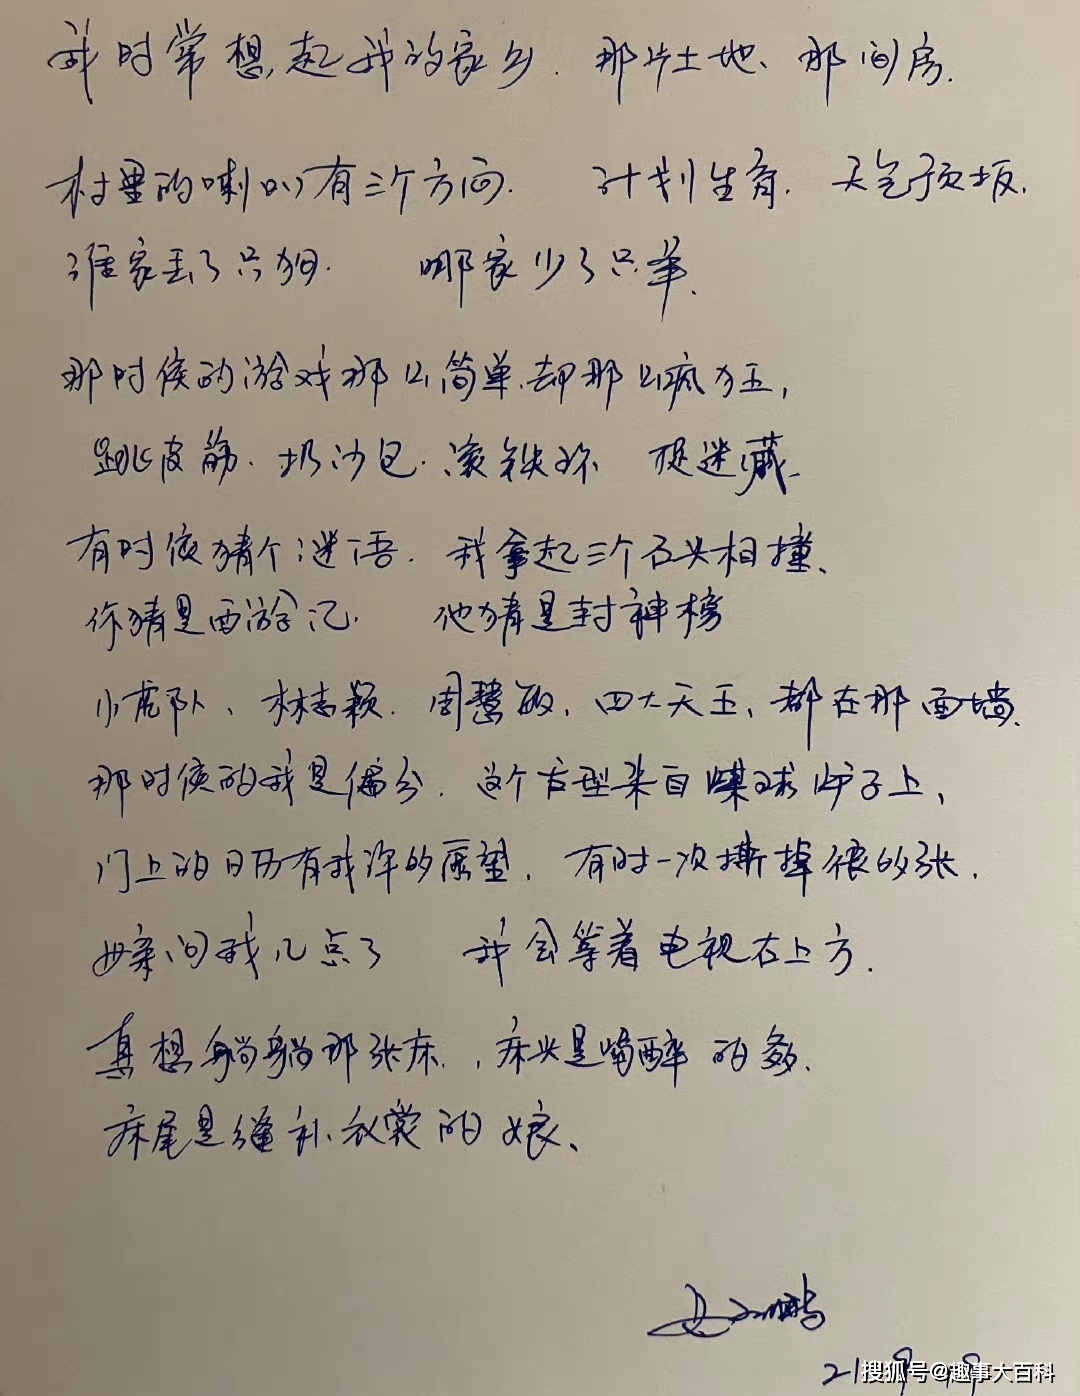 我时常想起我的家乡. 那片土地、那间房.
村里的喇叭有三个方向. 计划生育. 天气预报.
谁家丢了只狗. 哪家少了只羊.
那时候的游戏那么简单.却那么疯狂,
跳皮筋. 扔沙包. 滚铁环 捉迷藏
有时候猜个谜语. 我拿起三个石头相撞、
你猜是西游记. 他猜是封神榜
小虎队、林志颖. 周慧敏. 四大天王、都在那面墙.
那时候的我是偏分. 这个发型来自煤球炉子上、
门上的日历有我许的愿望. 有时一次撕掉很的张.
母亲问我几点了 我会等着电视右上方.
真想躺躺那张床., 床头是喝醉的爹.
床尾是缝补衣裳的娘、
搜狐号@趣事大百科